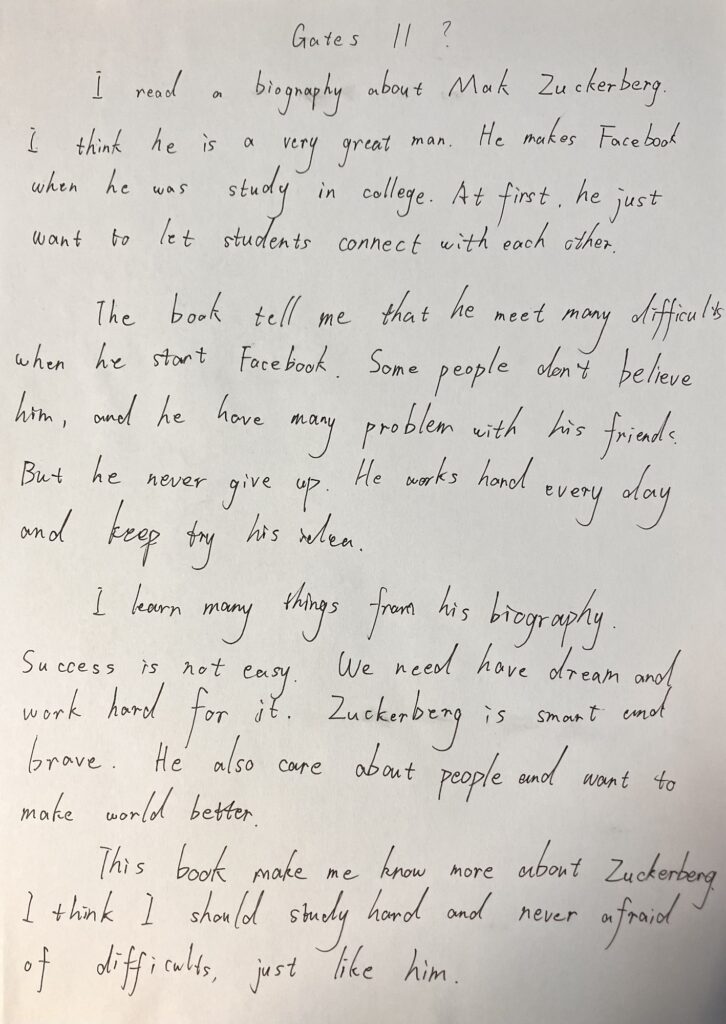 Gates II ?
I read a biography about Mak Zuckerberg.
I think he is a very great man. He makes Facebook
when he was study in college. At first, he just
want to let students connect with each other.
The book tell me that he meet many difficults
when he start Facebook. Some people don't believe
him, and he have many problem with his friends.
But he never give up. He works hard every day
and keep try his idea.
I learn many things from his biography.
Success is not easy. We need have dream and
work hard for it. Zuckerberg is smart and
brave. He also care about people and want to
make world better.
This book make me know more about Zuckerberg.
I think I should study hard and never afraid
of difficults, just like him.